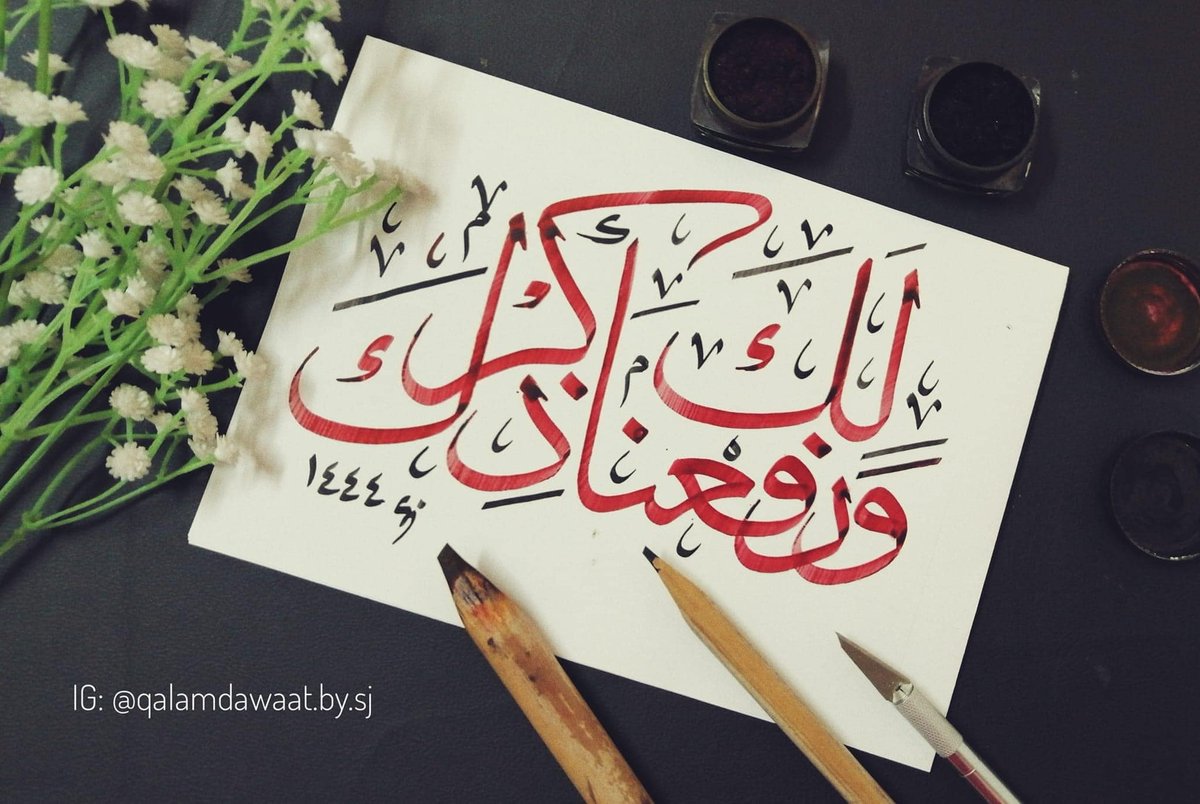 وَرَفَعْنَا لَكَ ذِكْرَكَ
١٤٤٤
IG: @qalamdawaat.by.sj